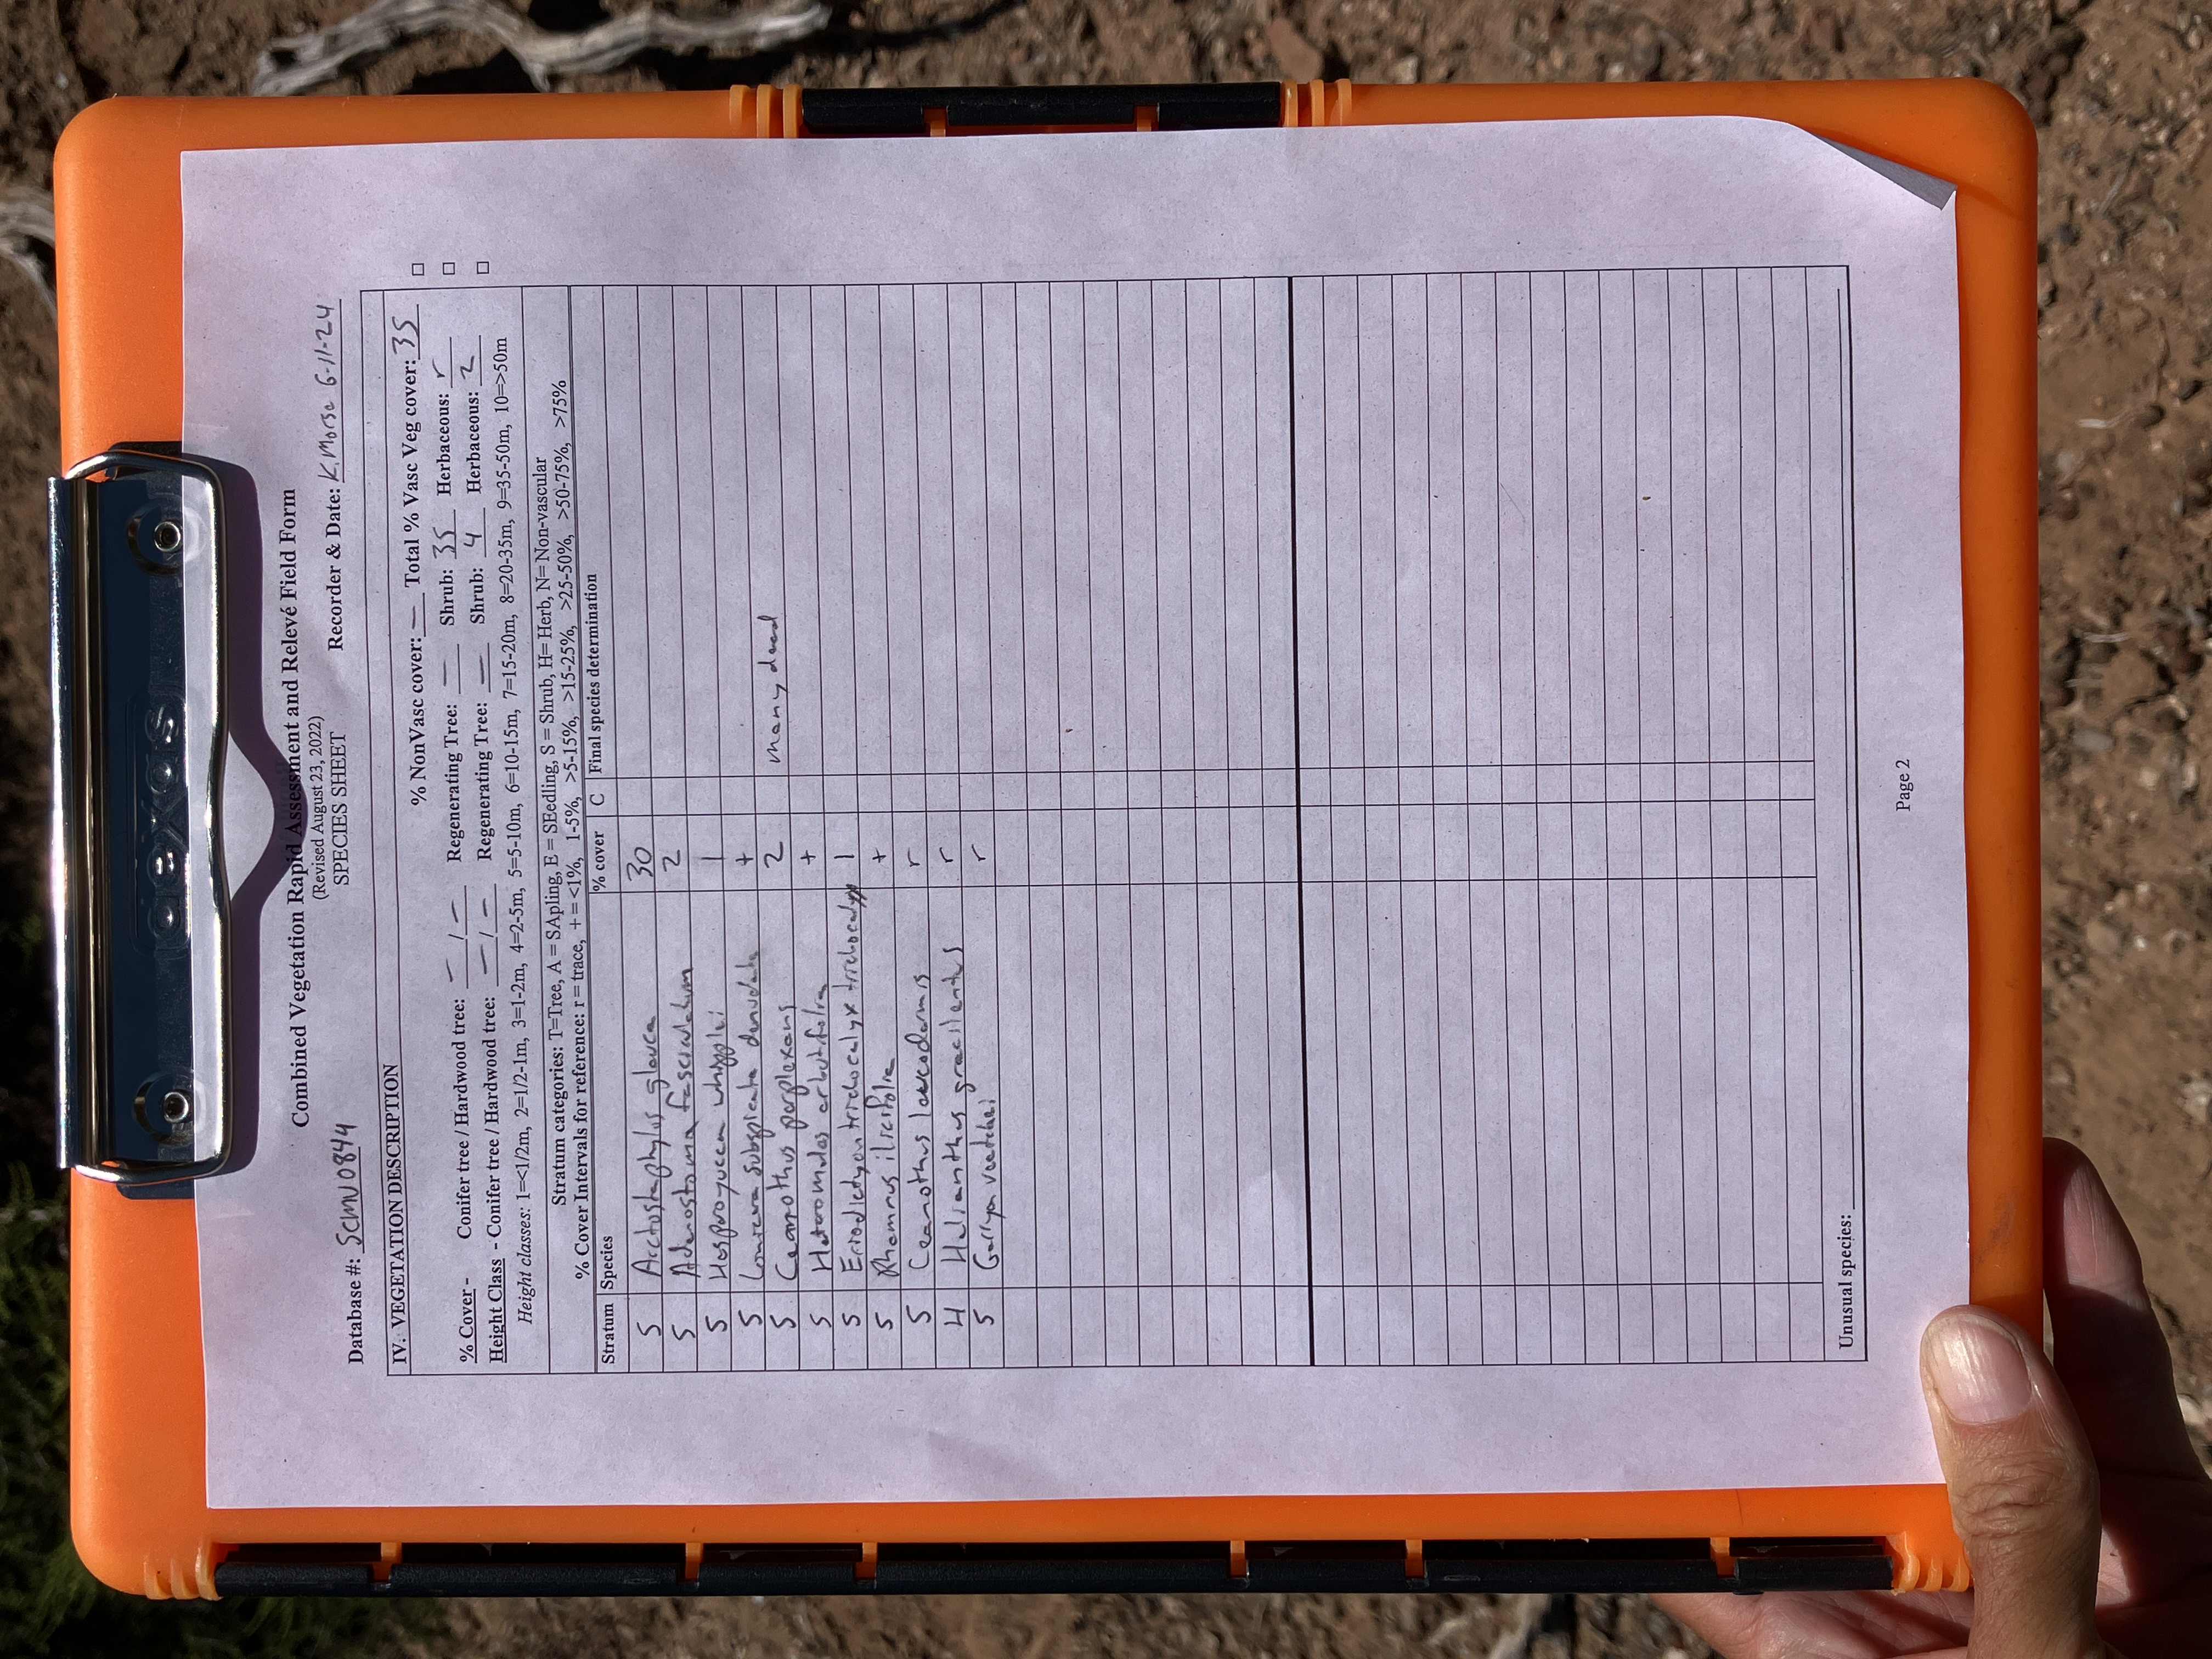 arexas
Combined Vegetation Rapid Assessment and Relevé Field Form
(Revised August 23, 2022)
SPECIES SHEET
Database #: SCMN0844 Recorder & Date: K. Morse 6-11-24
IV. VEGETATION DESCRIPTION
% NonVasc cover: — Total % Vasc Veg cover: 35 □
% Cover - Conifer tree / Hardwood tree: — / — Regenerating Tree: — Shrub: 35 Herbaceous: r □
Height Class - Conifer tree / Hardwood tree: — / — Regenerating Tree: — Shrub: 4 Herbaceous: 2 □
Height classes: 1=<1/2m, 2=1/2-1m, 3=1-2m, 4=2-5m, 5=5-10m, 6=10-15m, 7=15-20m, 8=20-35m, 9=35-50m, 10=>50m
Stratum categories: T=Tree, A = SApling, E = SEedling, S = Shrub, H= Herb, N= Non-vascular
% Cover Intervals for reference: r = trace, + = <1%, 1-5%, >5-15%, >15-25%, >25-50%, >50-75%, >75%
Stratum Species % cover C Final species determination
S Arctostaphylos glauca 30
S Adenostoma fasciculatum 2
S Hesperoyucca whipplei 1
S Lonicera subspicata denudata +
S Ceanothus perplexans 2 many dead
S Heteromeles arbutifolia +
S Eriodictyon trichocalyx trichocalyx 1
S Rhamnus ilicifolia +
S Ceanothus leucodermis r
H Helianthus gracilentus r
S Garrya veatchei r
Unusual species:
Page 2